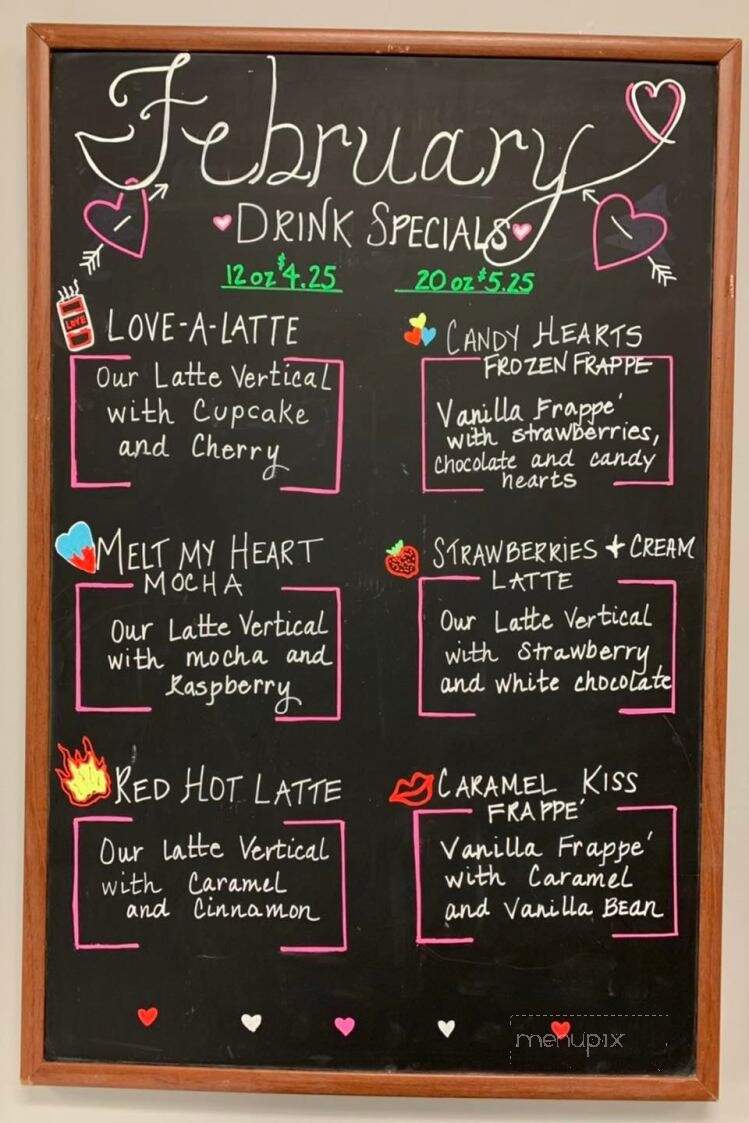 February
DRINK SPECIALS
12 oz $4.25
20 oz $5.25
LOVE
LOVE-A-LATTE
Our Latte Vertical
with Cupcake
and Cherry
CANDY HEARTS
FROZEN FRAPPE
Vanilla Frappe'
with strawberries,
chocolate and candy
hearts
MELT MY HEART
MOCHA
Our Latte Vertical
with mocha and
Raspberry
STRAWBERRIES + CREAM
LATTE
Our Latte Vertical
with Strawberry
and white chocolate
RED HOT LATTE
Our Latte Vertical
with Caramel
and Cinnamon
CARAMEL KISS
FRAPPE'
Vanilla Frappe'
with Caramel
and Vanilla BEAN
menupix